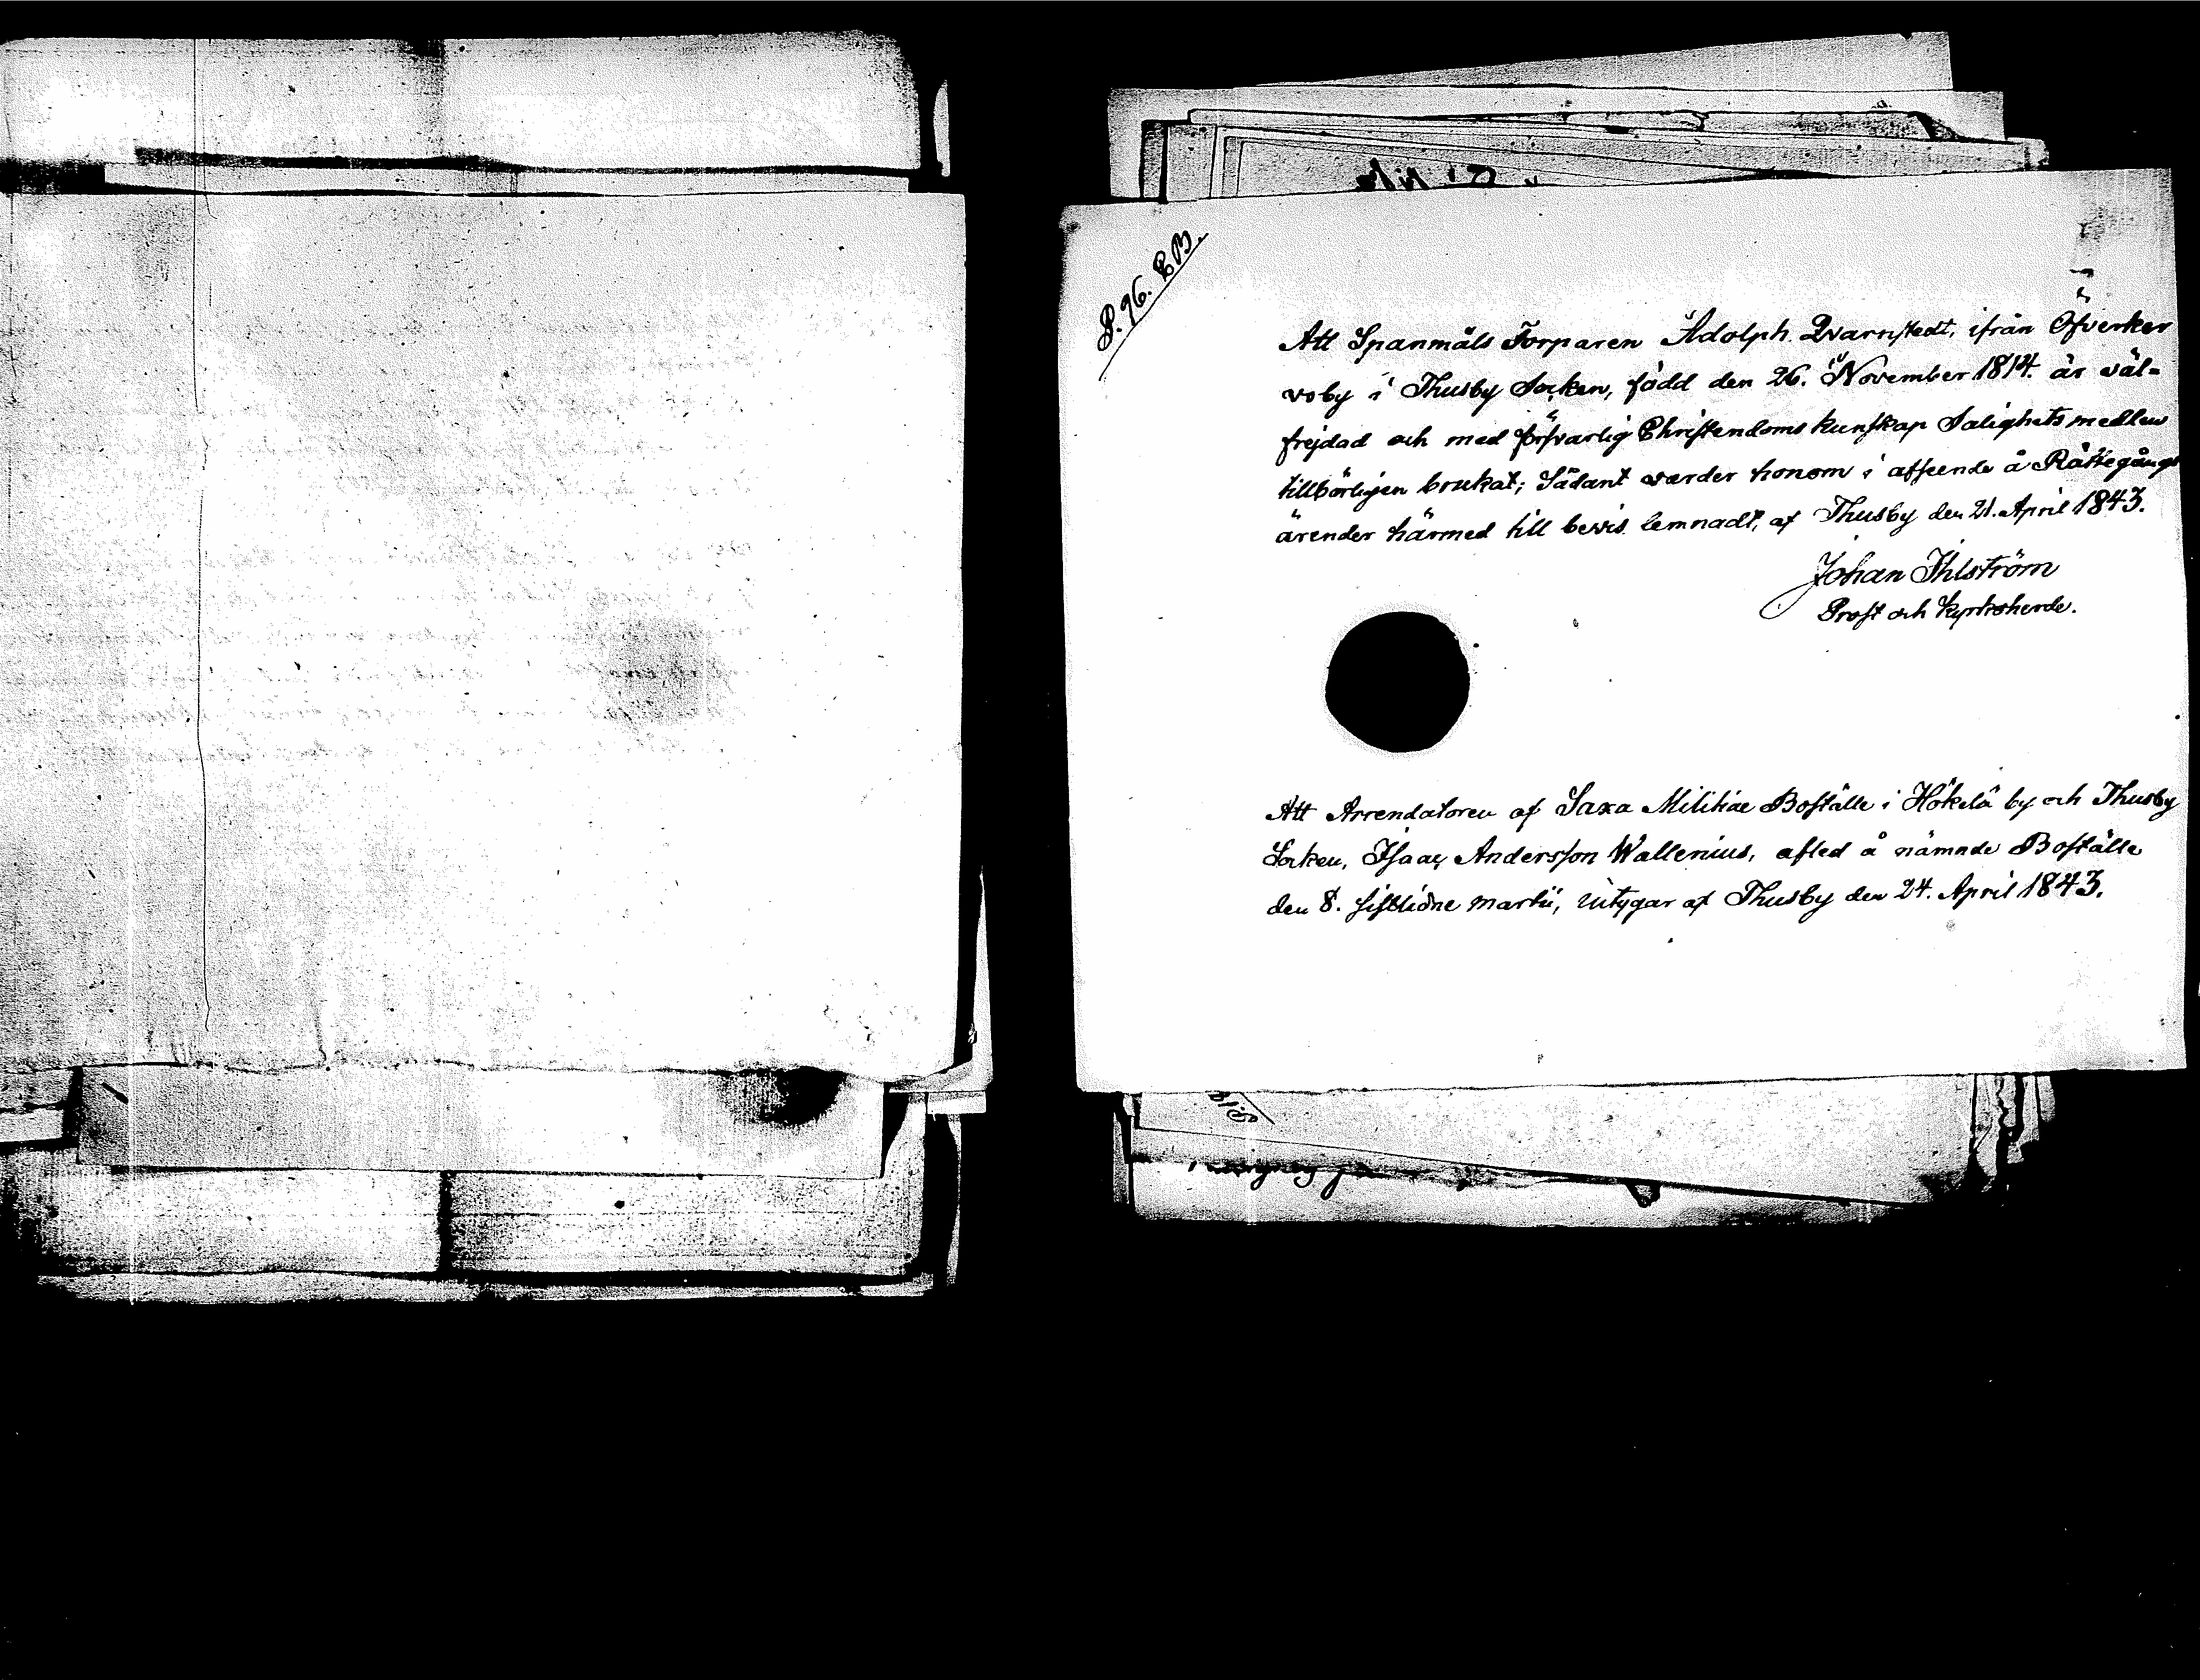 P. 96. B M.
Att Spanmåls Torparen Adolph Qvarnstedt, ifrån Öfverker
voby i Thusby Socken, född den 26. November 1814. är väl-
frejdad och med försvarlig Christendoms kunskap Salighetsmedlen
tillbörligen brukat; Sådant varder honom i afseende å Rättegångs
ärender härmed till bevis lemnadt, af Thusby den 21. April 1843.
Johan Ihlström
Prost och Kyrkoherde.
Att Arrendatoren af Saxa Militiae Boställe i Hökelä by och Thusby
Socken, Isaac Andersson Wallenius, afled å nämnde Boställe
den 8. sistlidne martii, intygar af Thusby den 24. April 1843.